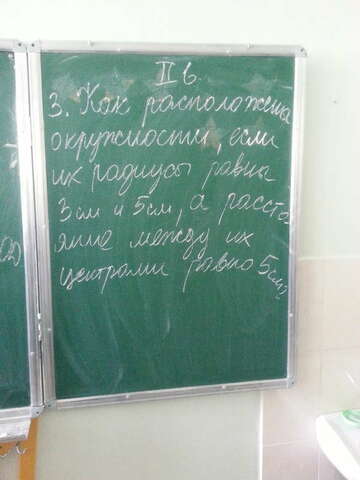 II в.
3. Как расположены
окружности, если
их радиусы равна
3см и 5см, а рассто
яние между их
центрами равно 5см?